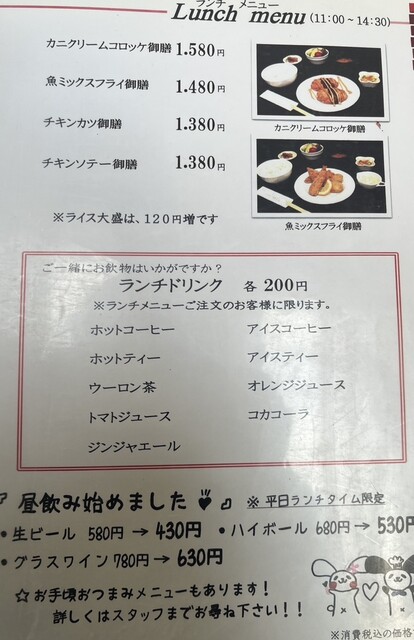 ランチ メニュー
Lunch menu (11:00～14:30)
カニクリームコロッケ御膳 1.580円
魚ミックスフライ御膳 1.480円
チキンカツ御膳 1.380円
チキンソテー御膳 1.380円
カニクリームコロッケ御膳
魚ミックスフライ御膳
※ライス大盛は、120円増です
ご一緒にお飲物はいかがですか？
ランチドリンク 各 200円
※ランチメニューご注文のお客様に限ります。
ホットコーヒー アイスコーヒー
ホットティー アイスティー
ウーロン茶 オレンジジュース
トマトジュース コカコーラ
ジンジャエール
『昼飲み始めました♥』 ※平日ランチタイム限定
・生ビール 580円→430円 ・ハイボール 680円→530円
・グラスワイン 780円→630円
☆お手頃おつまみメニューもあります！
詳しくはスタッフまでお尋ね下さい！！
※消費税込の価格